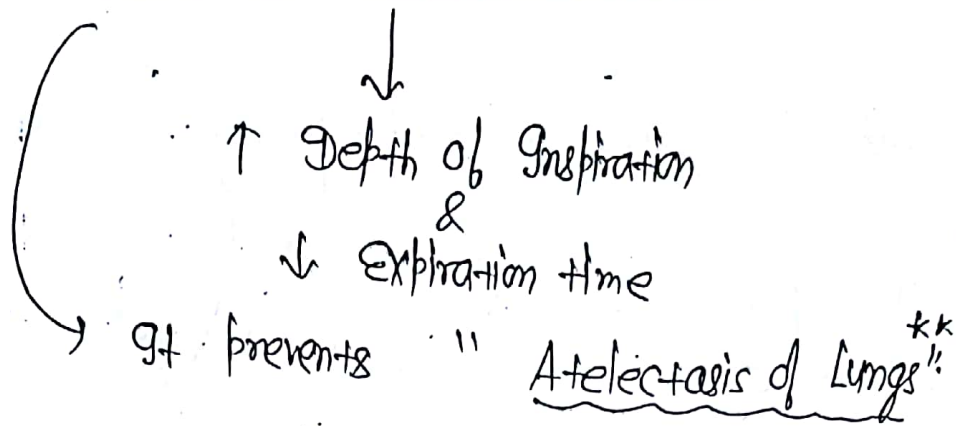 ↓
↑ Depth of Inspiration
&
↓ Expiration time
→ It prevents " Atelectasis of Lungs"**